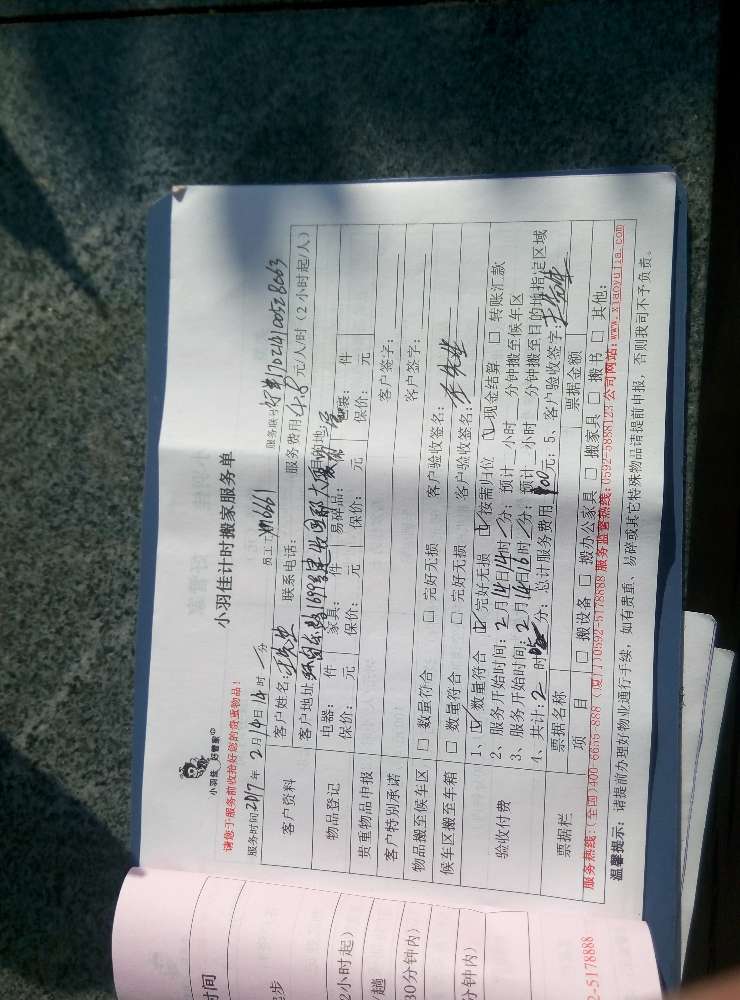 小羽佳 好管家
小羽佳计时搬家服务单
请您于服务前收拾好您的贵重物品!
服务时间2017年2月14日14时 分 员工 服务账号
客户资料 客户姓名:王先生 联系电话: 服务费用48元/人/时(2小时起/人)
客户地址 目的地:
物品登记 电器: 件 家具: 件 易碎品: 包装: 件
保价: 元 保价: 元 保价: 元 保价: 元
贵重物品申报 客户签字:
客户特别承诺 客户签字:
物品搬至候车区 □ 数量符合 □ 完好无损 客户验收签名:
候车区搬至车箱 □ 数量符合 □ 完好无损 客户验收签名:王先生
验收付费 1、☑ 数量符合 ☑ 完好无损 ☑ 按需归位 ☑ 现金结算 □ 转账汇款
2、服务开始时间:2月14日14时 分;预计 小时 分钟搬至候车区
3、服务开始时间:2月14日16时 分;预计 小时 分钟搬至目的地指定区域
4、共计:2时 分;总计服务费用 元;5、客户验收签字:王先生
票据栏 票据名称 票据金额
项 目 □ 搬设备 □ 搬办公家具 □ 搬家具 □ 搬书 □ 其他:
服务热线:(全国)400-6675-888 (厦门)0592-5178888 服务监督热线:0592-5888123 公司网站:www.xiaoyujia.com
温馨提示:请提前办理好物业通行手续,如有贵重、易碎或其它特殊物品请提前申报,否则我司不予负责。
时间
起步
2小时起)
趟
30分钟内)
分钟内)
2-5178888